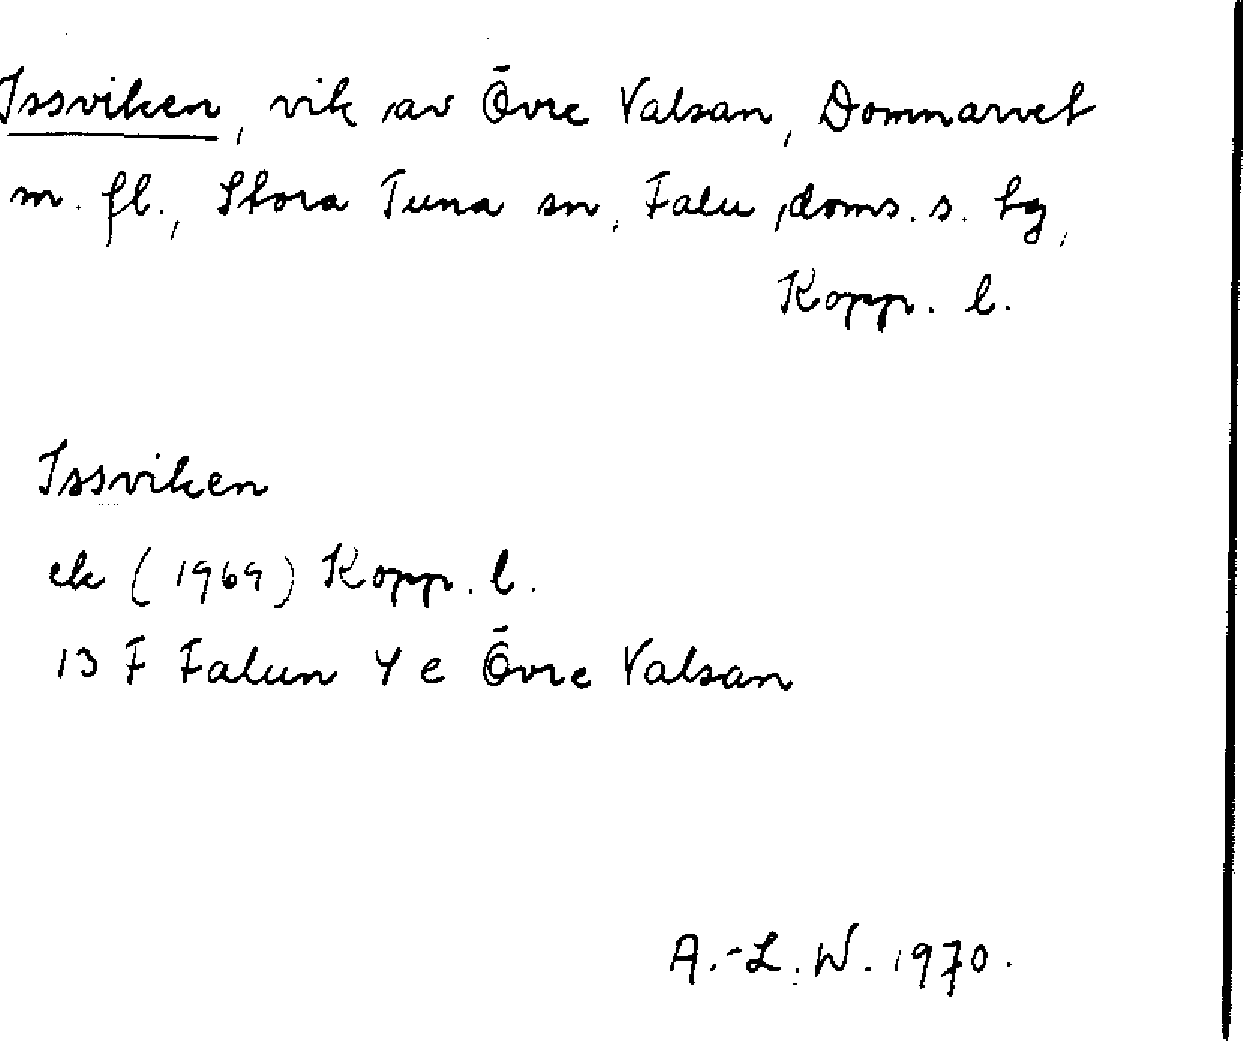 Issviken, vik av Övre Valsan, Domnarvet
m. fl., Stora Tuna sn, Falu doms. s. tg,
Kopp. l.
Issviken
ek (1969) Kopp. l.
13 F Falun 4 e Övre Valsan
A.-L. W. 1970.